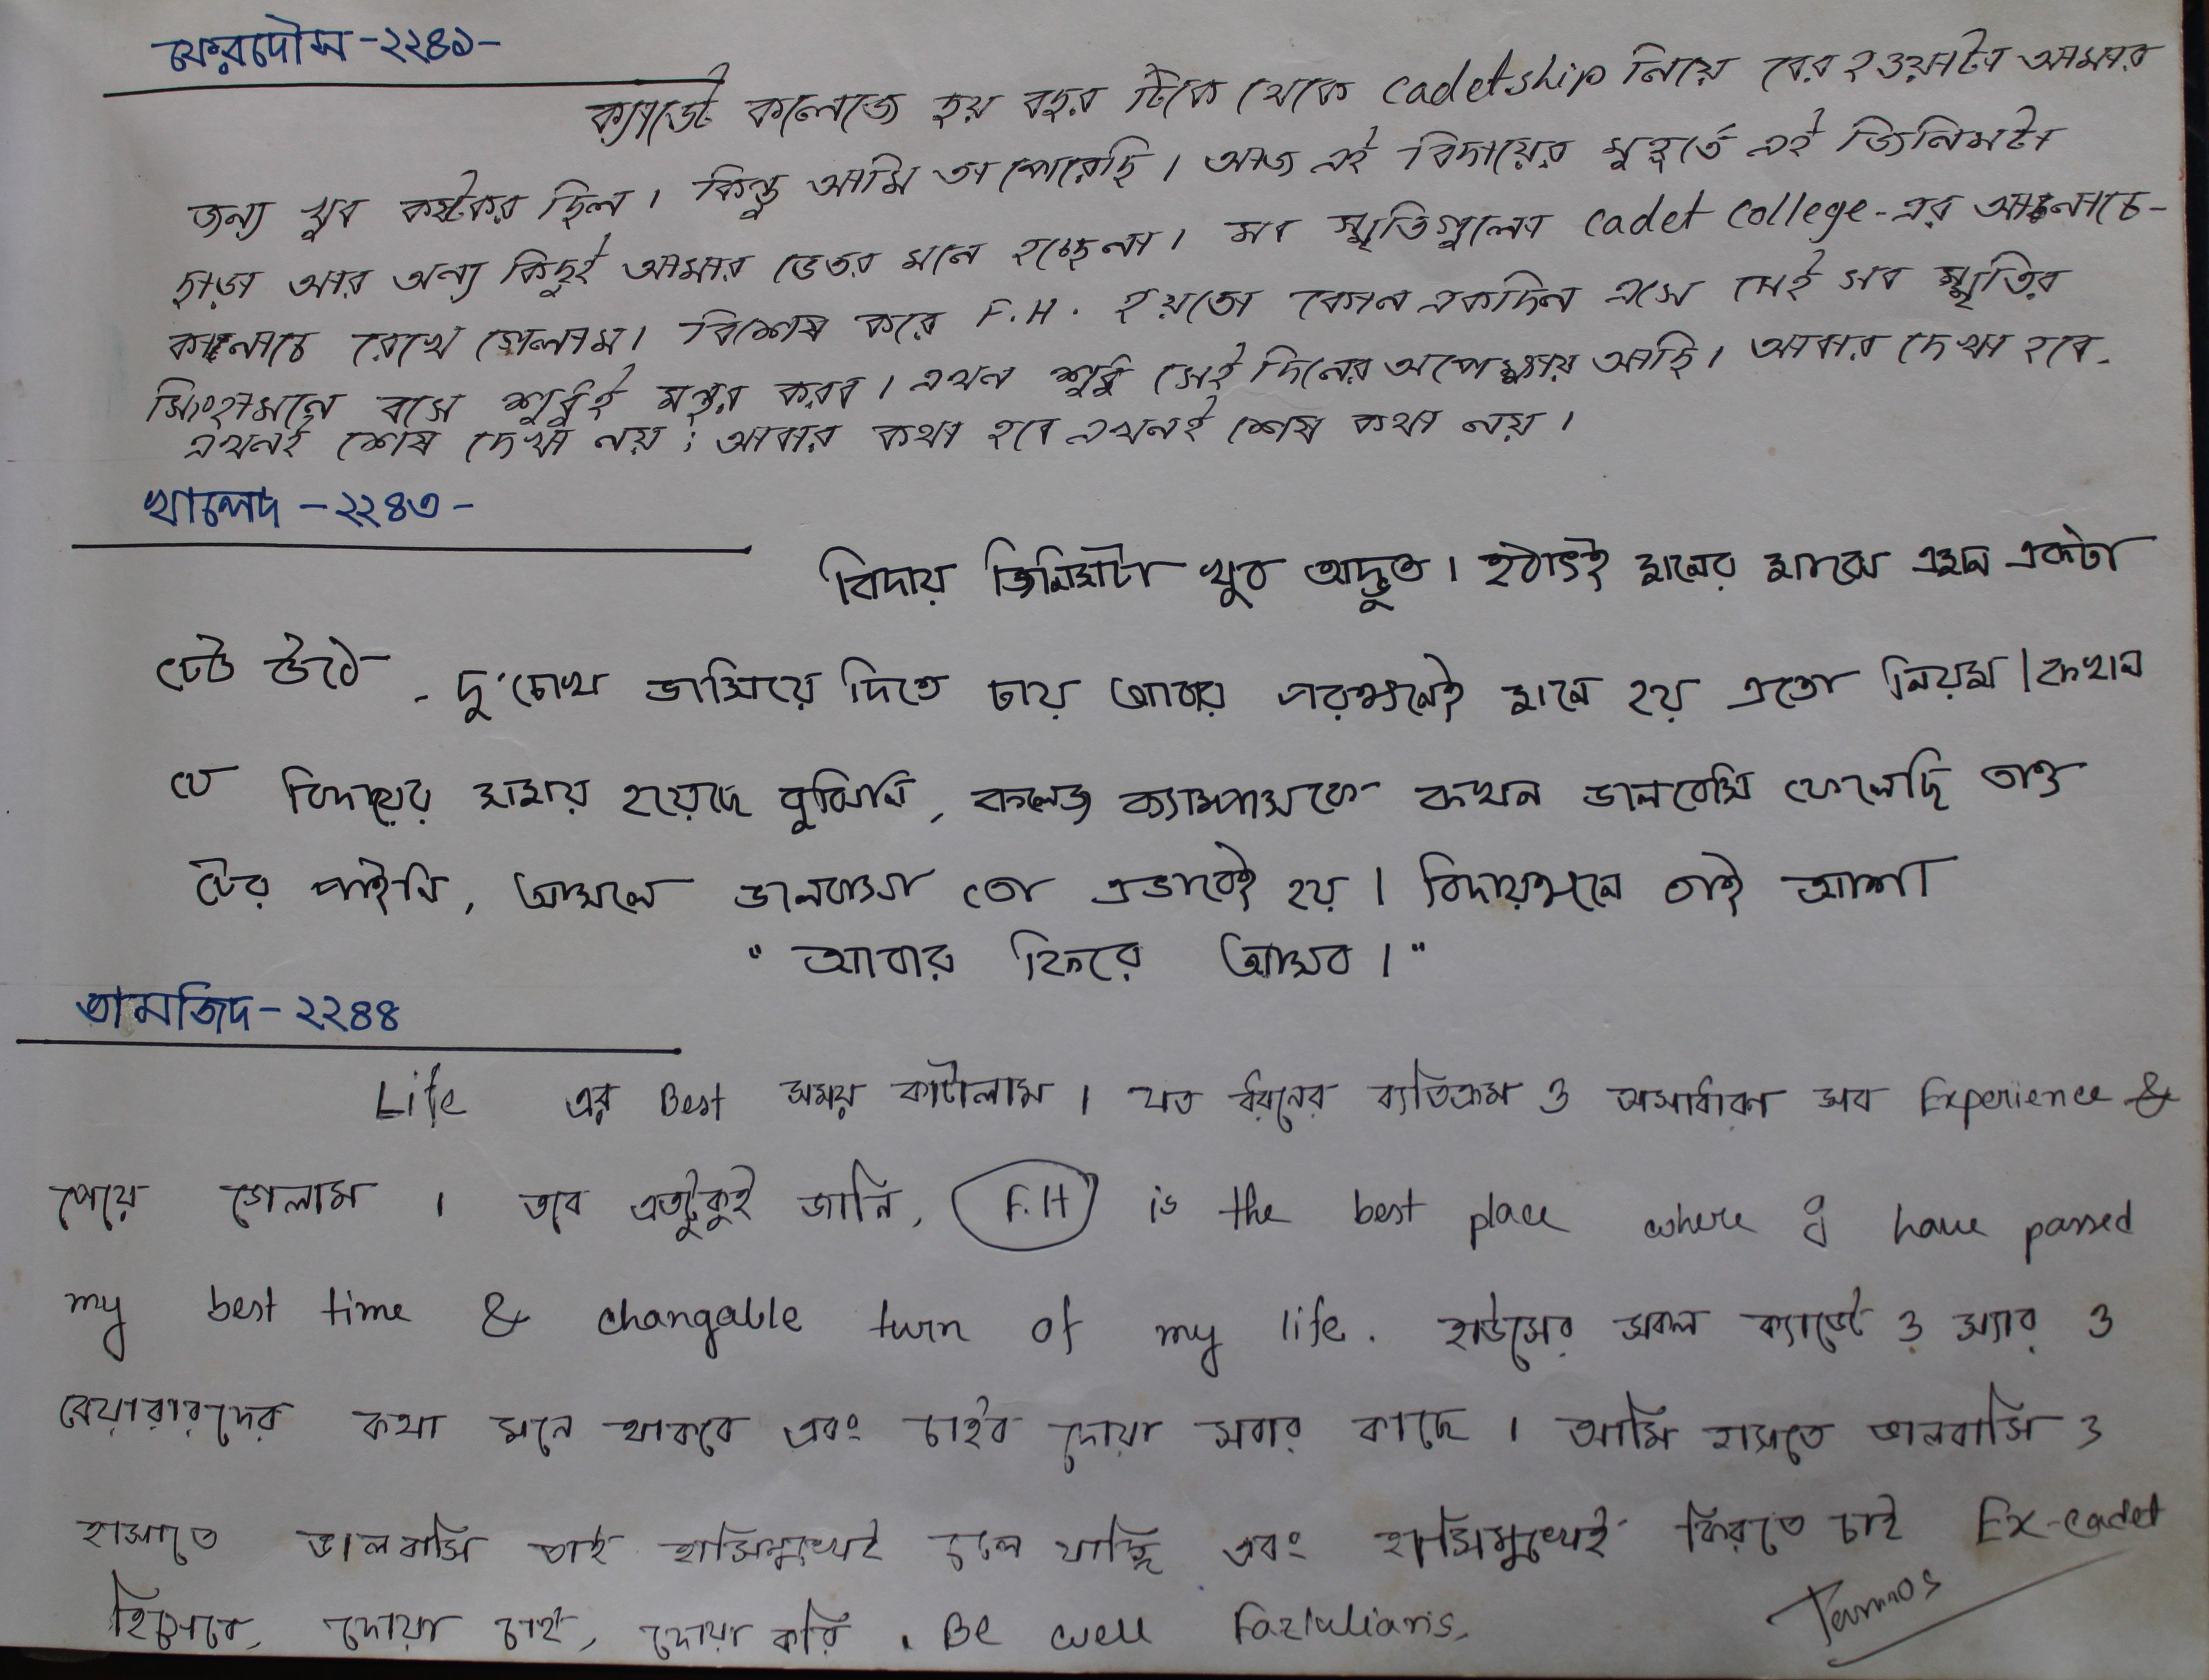 ফেরদৌস -২২৪১-
ক্যাডেট কলেজে ছয় বছর টিকে থেকে cadetship নিয়ে বের হওয়াটা আমার
জন্য খুব কষ্টকর ছিল। কিন্তু আমি তা পেরেছি। আজ এই বিদায়ের মুহূর্তে এই জিনিসটা
ছাড়া আর অন্য কিছুই আমার ভেতর মনে হচ্ছেনা। সব স্মৃতিগুলো cadet college-এর আনাচে-
কানাচে রেখে গেলাম। বিশেষ করে F.H. হয়তো কোন একদিন এসে সেই সব স্মৃতির
সিংহাসনে বসে শুধুই মন্থর করব। এখন শুধু সেই দিনের অপেক্ষায় আছি। আবার দেখা হবে-
এখনই শেষ দেখা নয়; আবার কথা হবে এখনই শেষ কথা নয়।
খালেদ -২২৪৩-
বিদায় জিনিসটা খুব অদ্ভুত। হঠাৎই মনের মাঝে এমন একটা
ঢেউ উঠে - দু'চোখ ভাসিয়ে দিতে চায় আবার পরক্ষনেই মনে হয় এতো নিয়ম। কখন
যে বিদায়ের সময় হয়েছে বুঝিনি, কলেজ ক্যাম্পাসকে কখন ভালবেসে ফেলেছি তাও
টের পাইনি, আসলে ভালবাসা তো এভাবেই হয়। বিদায়ক্ষনে তাই আশা
"আবার ফিরে আসব।"
তামজিদ-২২৪৪
Life এর Best সময় কাটালাম। যত ধরনের ব্যতিক্রম ও অসাধারণ সব Experience &
পেয়ে গেলাম। তবে এতটুকুই জানি, F.H is the best place where I have passed
my best time & changable turn of my life. হাউসের সকল ক্যাডেট ও স্যার ও
বেয়ারারদের কথা মনে থাকবে এবং চাইব দোয়া সবার কাছে। আমি হাসতে ভালবাসি ও
হাসাতে ভালবাসি তাই হাসিমুখেই চলে যাচ্ছি এবং হাসিমুখেই ফিরতে চাই Ex-cadet
হিসেবে, দোয়া চাই, দোয়া করি. Be well Fazlulians.